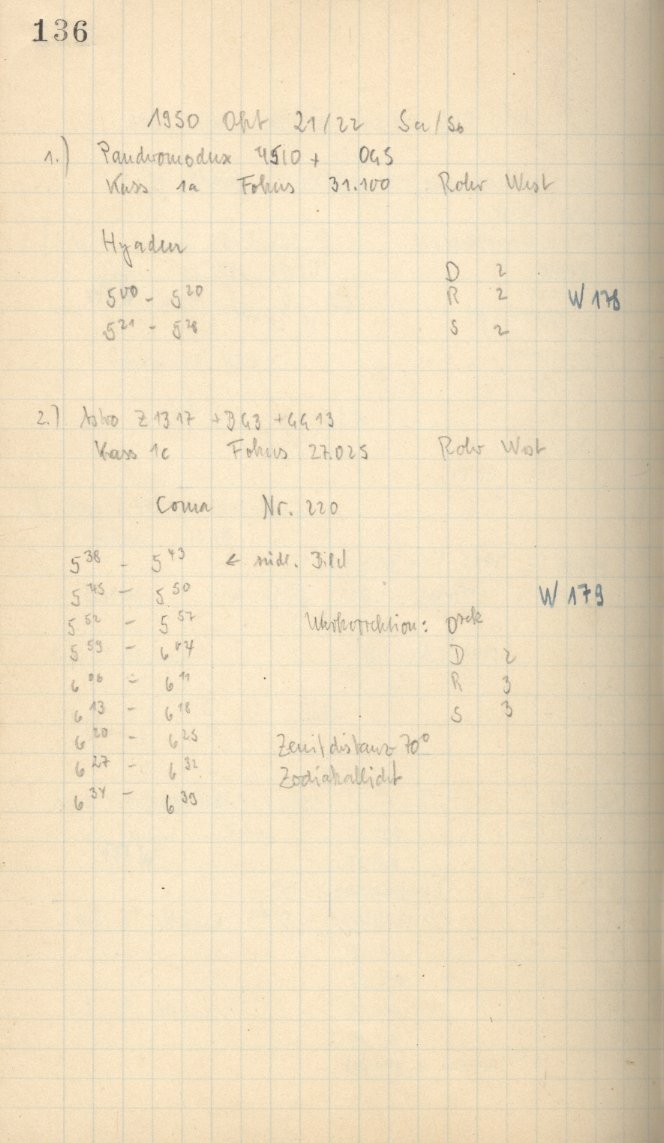 136
1950 Okt 21/22 Sa/So
1.) Panchromodux 4510 + OG5
Kass 1a Fokus 31.100 Rohr West
Hyaden
D 2
5 00 - 5 20 R 2 W 178
5 21 - 5 28 S 2
2.) Astro Z 1317 + BG3 + GG13
Kass 1c Fokus 27.025 Rohr West
Coma Nr. 220
5 38 - 5 43 ← südl. Bild
5 45 - 5 50 W 179
5 52 - 5 57 Uhrkorrektion: 0 sek
5 59 - 6 04 D 2
6 06 - 6 11 R 3
6 13 - 6 18 S 3
6 20 - 6 25 Zenitdistanz 70°
6 27 - 6 32 Zodiakallicht
6 34 - 6 39